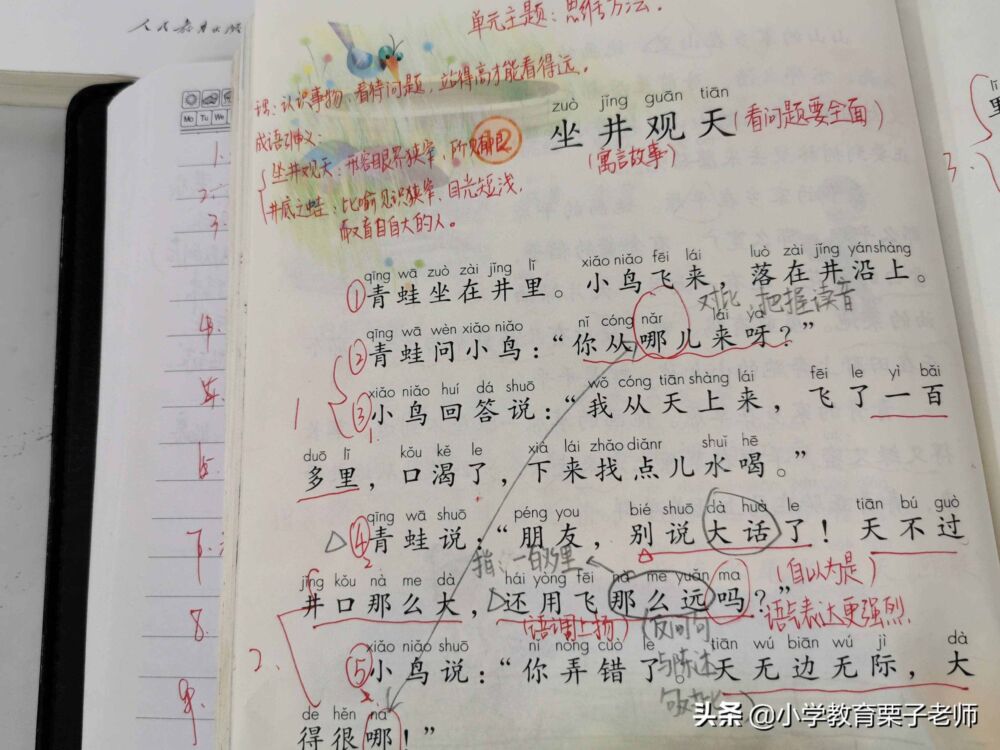 人民教育出版
单元主题：思维方法。
语：认识事物、看待问题，站得高才能看得远。
成语引申义：
坐井观天：形容眼界狭窄，所见有限
井底之蛙：比喻见识狭窄、目光短浅，
而又盲目自大的人。
12
zuò jǐng guān tiān
坐井观天（看问题要全面）
（寓言故事）
qīng wā zuò zài jǐng lǐ xiǎo niǎo fēi lái luò zài jǐng yán shàng
①青蛙坐在井里。小鸟飞来，落在井沿上。
对比 把握读音
qīng wā wèn xiǎo niǎo nǐ cóng nǎr lái ya
②青蛙问小鸟：“你从哪儿来呀？”
xiǎo niǎo huí dá shuō wǒ cóng tiān shàng lái fēi le yì bǎi
③小鸟回答说：“我从天上来，飞了一百
duō lǐ kǒu kě le xià lái zhǎo diǎnr shuǐ hē
多里，口渴了，下来找点儿水喝。”
qīng wā shuō péng you bié shuō dà huà le tiān bú guò
④青蛙说：“朋友，别说大话了！天不过
指：一百多里
（自以为是）
jǐng kǒu nà me dà hái yòng fēi nà me yuǎn ma
井口那么大，还用飞那么远吗？”
（语调上扬）
反问句
语气表达更强烈
xiǎo niǎo shuō nǐ nòng cuò le tiān wú biān wú jì dà
⑤小鸟说：“你弄错了。天无边无际，大
与陈述
de hěn na
得很哪！”
1
2.
1.
2.
3.
4.
5.
6.
7.
8.
9.
Mo Tu We
3.
头条 @小学教育栗子老师